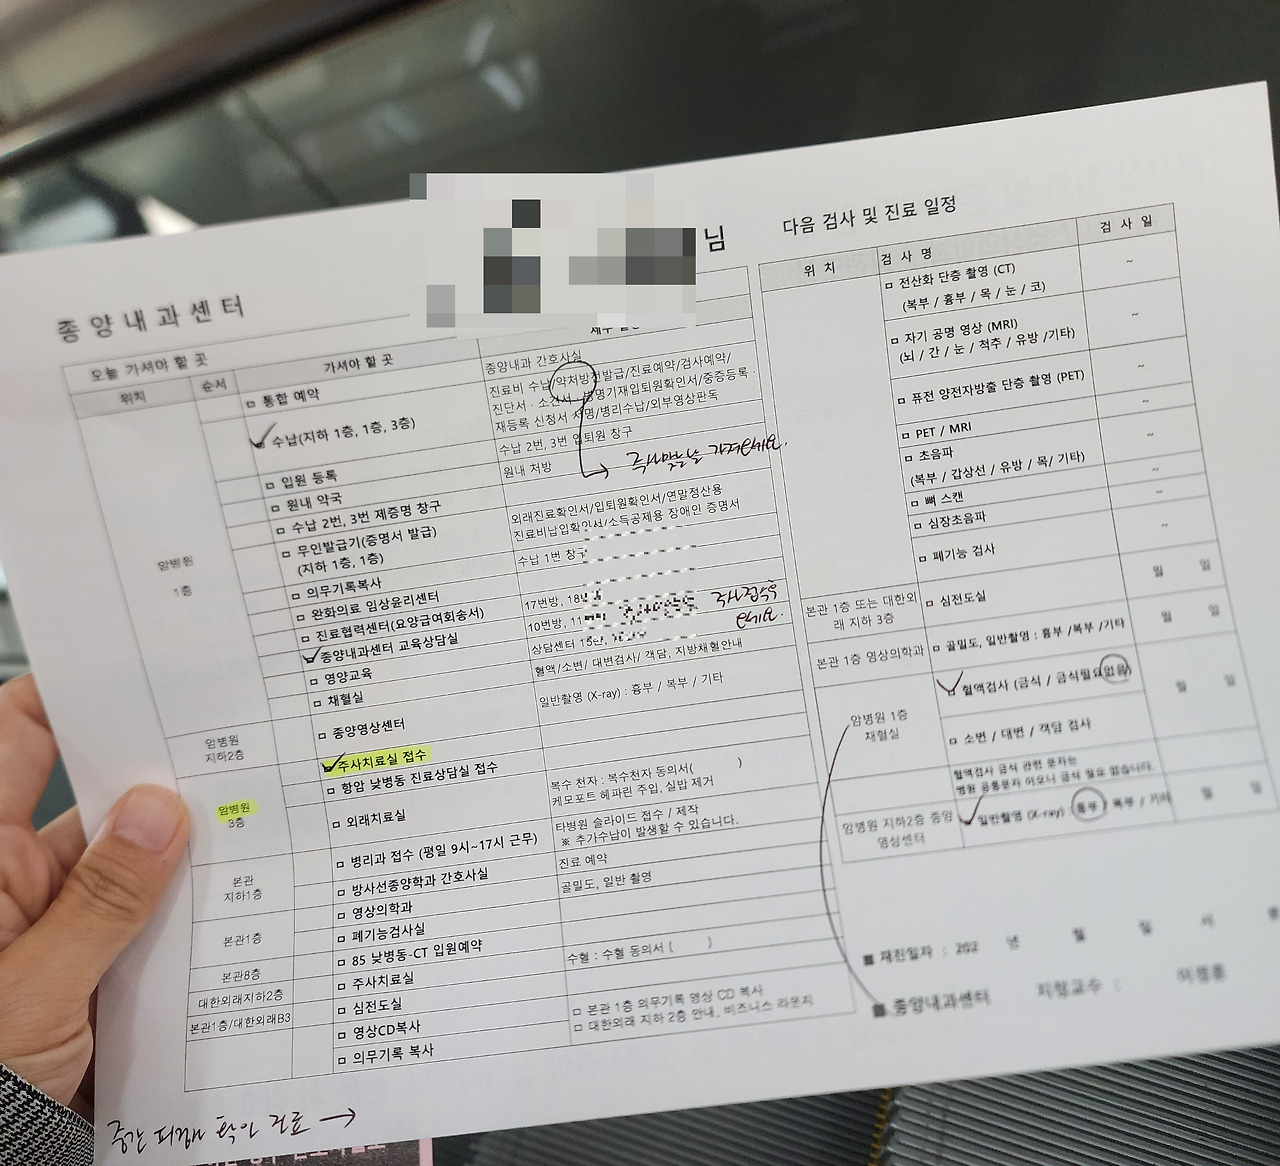 종양내과센터
님
오늘 가셔야 할 곳
위치 순서 가셔야 할 곳
암병원 1층
□ 통합 예약 종양내과 간호사실
✓ 수납(지하 1층, 1층, 3층) 진료비 수납/약처방전발급/진료예약/검사예약/
진단서·소견서 병명기재입퇴원확인서/중증등록·
재등록 신청서 서명/병리수납/외부영상판독
□ 입원 등록 수납 2번, 3번 입퇴원 창구
□ 원내 약국 원내 처방
주사맞는날 가져오세요.
□ 수납 2번, 3번 제증명 창구
□ 무인발급기(증명서 발급) 외래진료확인서/입퇴원확인서/연말정산용
(지하 1층, 1층) 진료비납입확인서/소득공제용 장애인 증명서
□ 의무기록복사 수납 1번 창구
□ 완화의료 임상윤리센터
□ 진료협력센터(요양급여회송서) 17번방, 18
✓ 종양내과센터 교육상담실 10번방, 11
주사접수후
오세요.
□ 영양교육 상담센터
□ 채혈실 혈액/소변/ 대변검사/ 객담, 지방채혈안내
암병원 지하2층
□ 종양영상센터 일반촬영 (X-ray) : 흉부 / 복부 / 기타
암병원 3층
✓ 주사치료실 접수
□ 항암 낮병동 진료상담실 접수
□ 외래치료실 복수 천자 : 복수천자 동의서( )
케모포트 헤파린 주입, 실밥 제거
본관 지하1층
□ 병리과 접수 (평일 9시~17시 근무) 타병원 슬라이드 접수 / 제작
※ 추가수납이 발생할 수 있습니다.
□ 방사선종양학과 간호사실 진료 예약
본관1층
□ 영상의학과 골밀도, 일반 촬영
□ 폐기능검사실
본관8층
□ 85 낮병동-CT 입원예약
대한외래지하2층
□ 주사치료실 수혈 : 수혈 동의서 ( )
본관1층/대한외래B3
□ 심전도실
□ 영상CD복사 □ 본관 1층 의무기록 영상 CD 복사
□ 의무기록 복사 □ 대한외래 지하 2층 안내, 비즈니스 라운지
확인 진료 →
다음 검사 및 진료 일정
위 치 검 사 명 검 사 일
□ 전산화 단층 촬영 (CT) ~
(복부 / 흉부 / 목 / 눈 / 코)
□ 자기 공명 영상 (MRI) ~
(뇌 / 간 / 눈 / 척추 / 유방 /기타)
□ 퓨전 양전자방출 단층 촬영 (PET) ~
□ PET / MRI ~
□ 초음파 ~
(복부 / 갑상선 / 유방 / 목/ 기타)
□ 뼈 스캔 ~
□ 심장초음파 ~
□ 폐기능 검사 ~
본관 1층 또는 대한외래 지하 3층 □ 심전도실 월 일
본관 1층 영상의학과 □ 골밀도, 일반촬영 : 흉부 /복부 /기타 월 일
암병원 1층 채혈실
✓ 혈액검사 (금식 / 금식필요없음) 월 일
□ 소변 / 대변 / 객담 검사
혈액검사 금식 관련 문자는
병원 공통문자 이오니 금식 필요 없습니다.
암병원 지하2층 종양영상센터 ✓ 일반촬영 (X-ray) : 흉부 / 복부 / 기타 월 일
■ 재진일자 : 202 년 월 일 시 분
■ 종양내과센터 지정교수 :